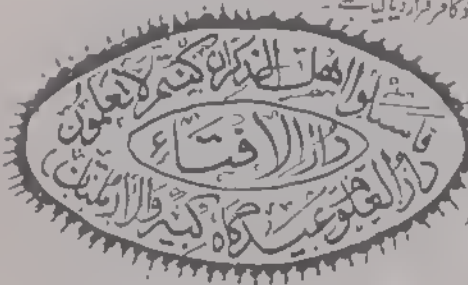 کافر قرار دیا گیا ہے۔
فاسئلوا اهل الذکر ان کنتم لا تعلمون
دار الافتاء
دار العلوم عیدگاہ کبیر والا